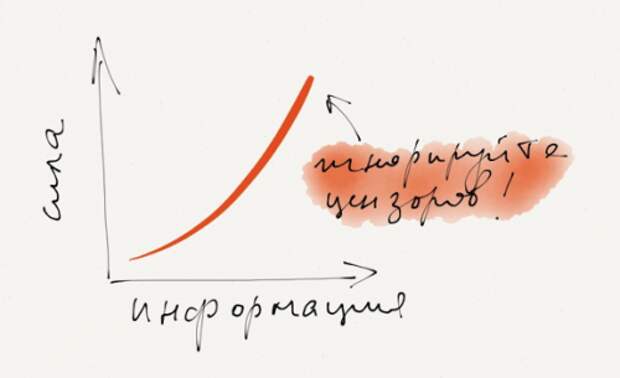 сила
игнорируйте
цензоров!
информация